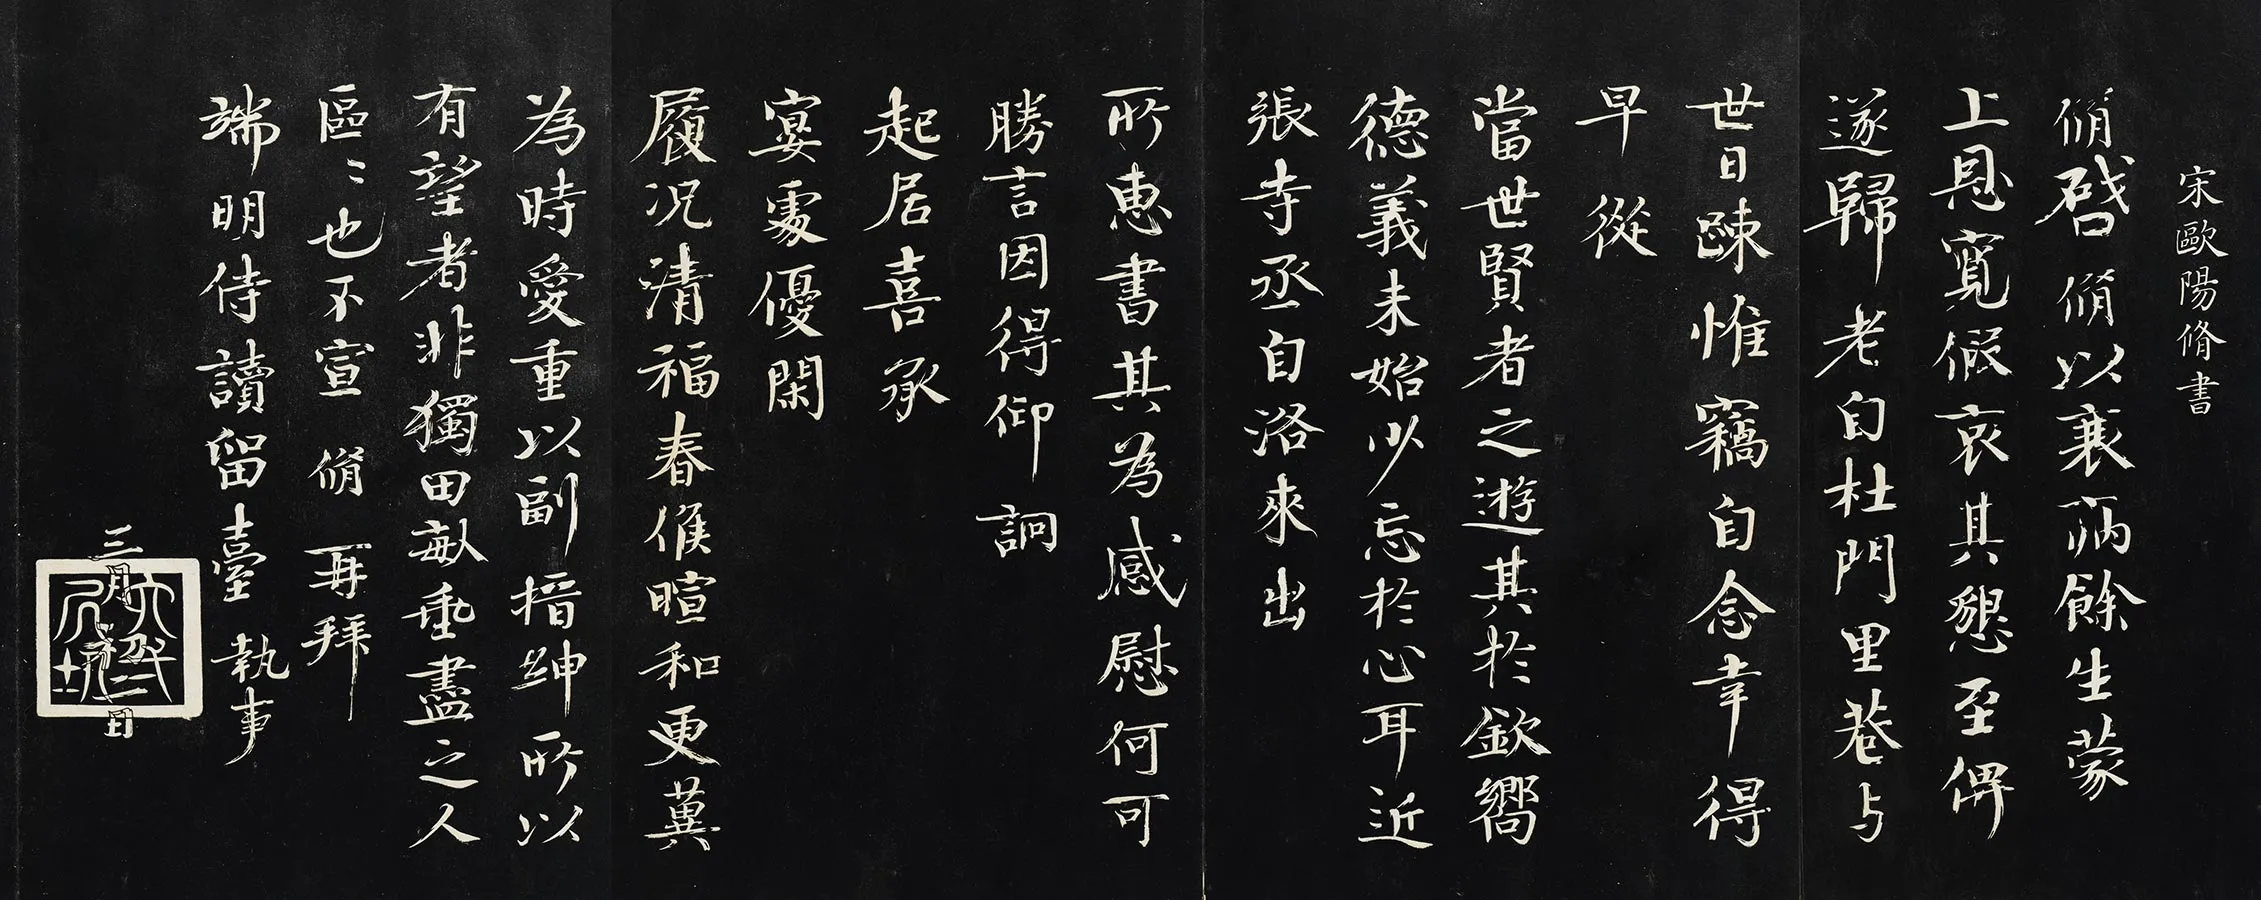 宋歐陽脩書
脩啓脩以衰病餘生蒙
上恩寬假哀其懇至俾
遂歸老自杜門里巷与
世日踈惟竊自念幸得
早從
當世賢者之遊其於欽嚮
德義未始少忘於心耳近
張寺丞自洛來出
所惠書其為感慰何可
勝言因得仰詗
起居喜承
宴處優閑
履况清福春候暄和更冀
為時愛重以副搢紳所以
有望者非獨田畝垂盡之人
區〻也不宣 脩 再拜
端明侍讀留臺 執事
三月初二日